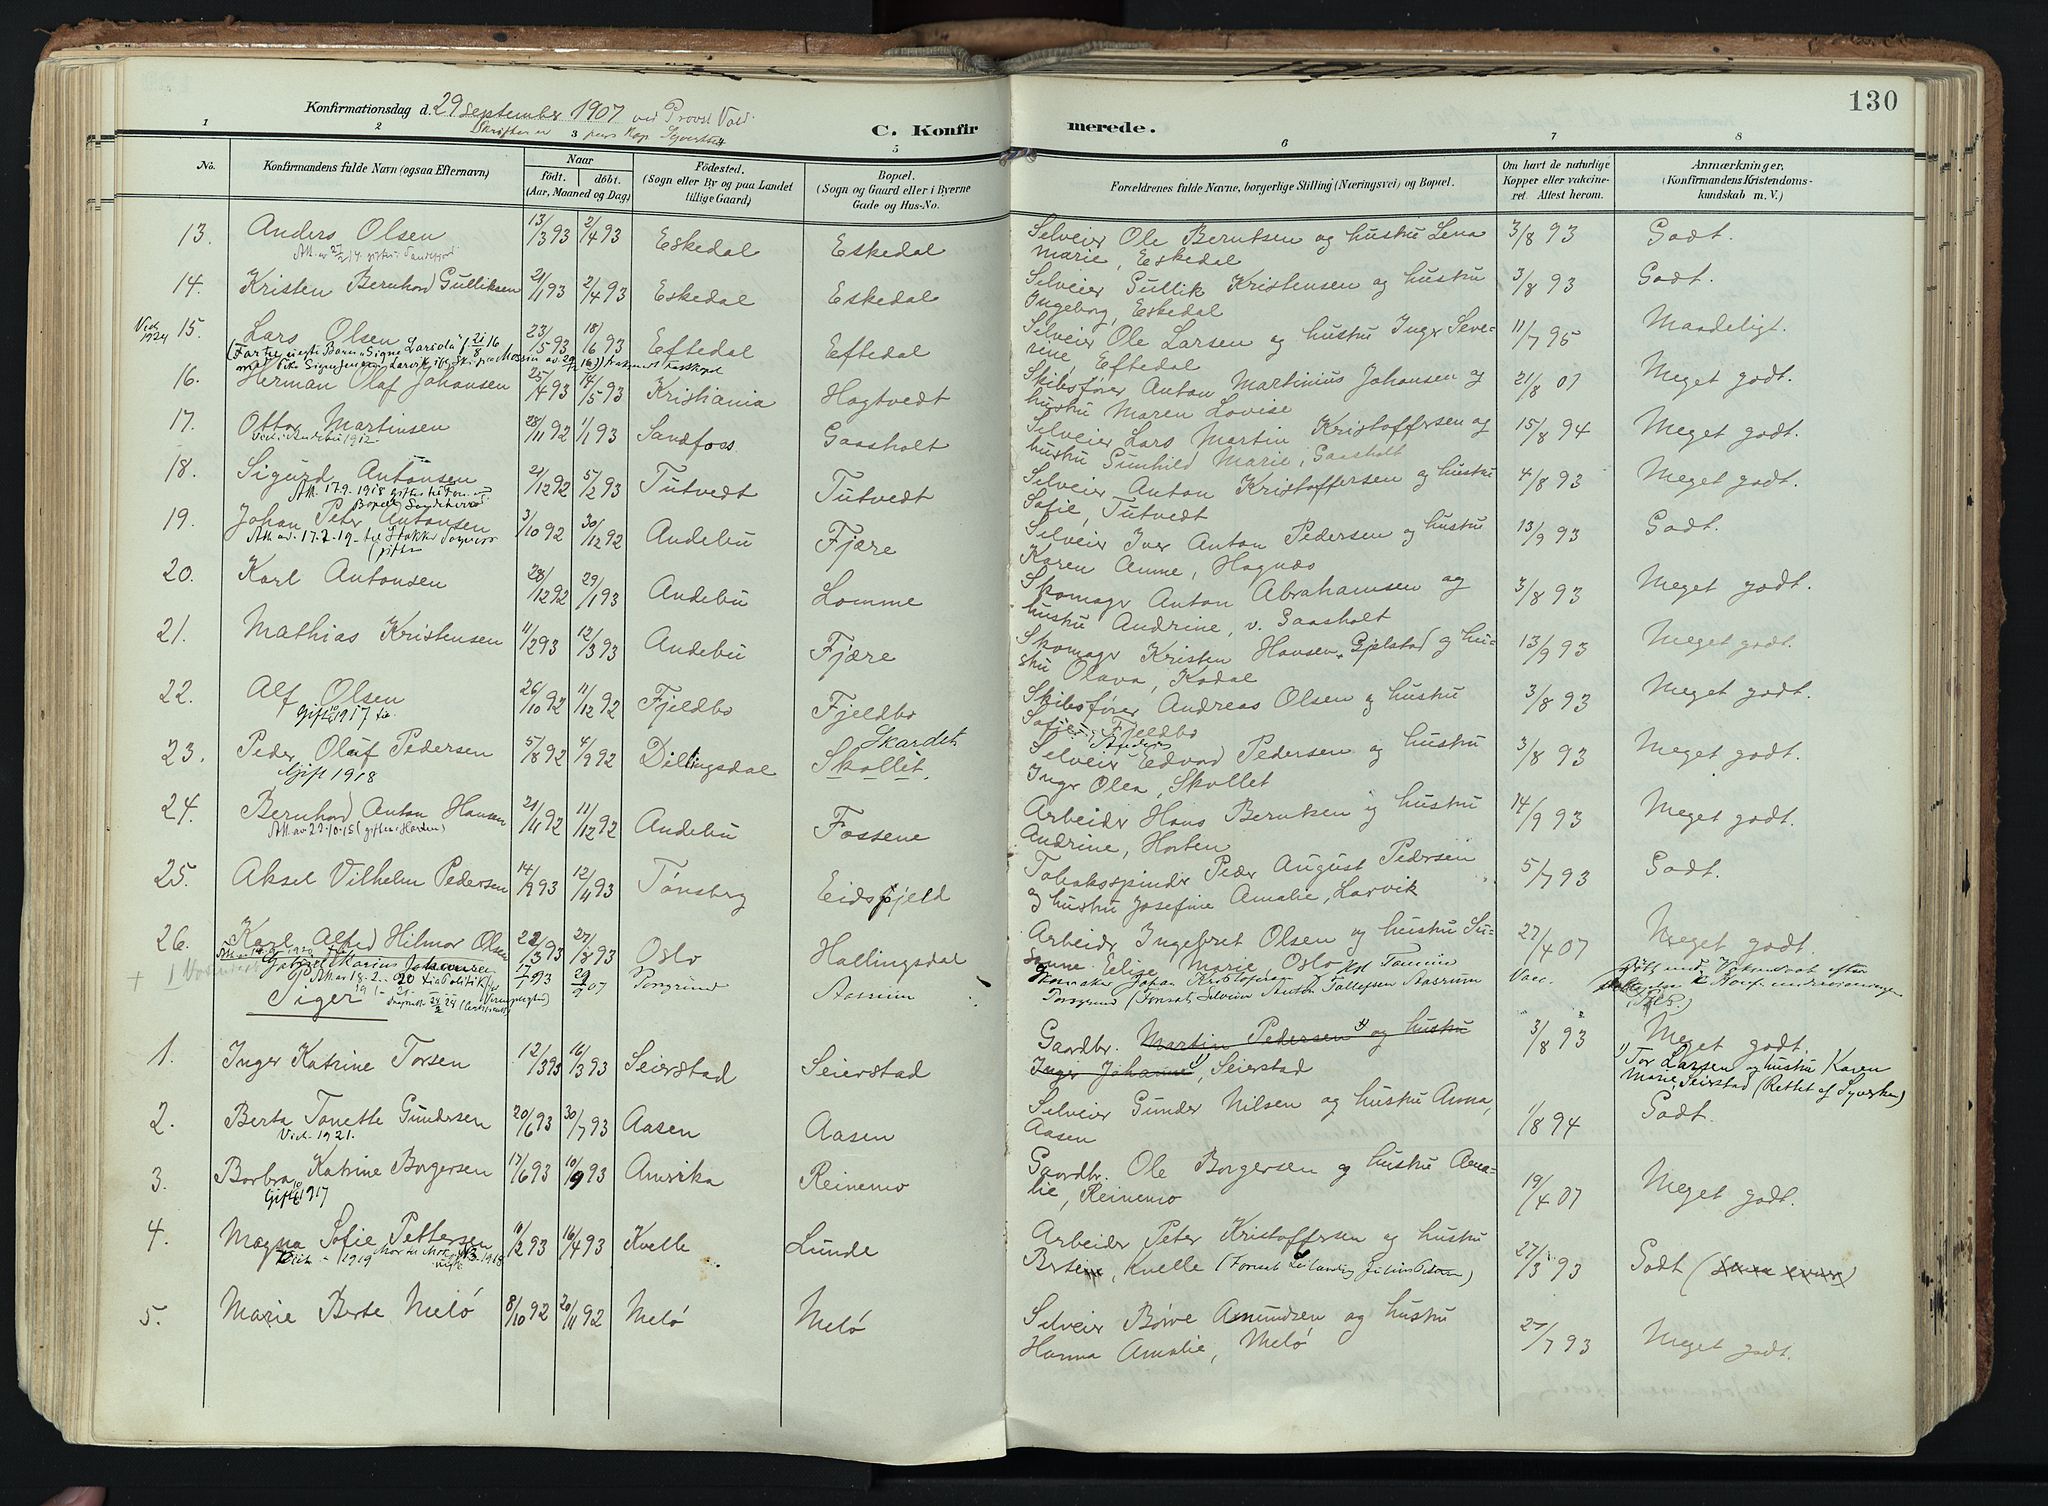 130
Konfirmationsdag d. 29 September 1907 ved Provst
C. Konfirmerede.
1 2 3 5 6 7 8
No. Konfirmandens fulde Navn (ogsaa Efternavn) Naar født. døbt. (Aar, Maaned og Dag) Fødested. (Sogn eller By og paa Landet tillige Gaard) Bopæl. (Sogn og Gaard eller i Byerne Gade og Hus-No. Forældrenes fulde Navne, borgerlige Stilling (Næringsvei) og Bopæl. Om havt de naturlige Kopper eller vaccineret. Attest herom. Anmærkninger. (Konfirmandens Kristendomskundskab m. V.)
13. Anders Olsen 13/3 93 2/4 93 Eskedal Eskedal Selveier Ole Berntsen og hustru Lena 3/8 93 Godt.
Marie, Eskedal
14. Kristen Bernhard Gulliksen 21/1 93 2/4 93 Eskedal Eskedal Selveier Gullik Kristensen og hustru 3/8 93 Godt.
Ingeborg, Eskedal
15. Lars Olsen 23/5 93 18/6 93 Eftedal Eftedal Selveier Ole Larsen og hustru Inger Seve- 11/7 95 Maadeligt.
1924
rine, Eftedal
16. Herman Olaf Johansen 25/4 93 14/5 93 Kristiania Hogtvedt Skibsfører Anton Martinius Johansen og 21/8 07 Meget godt.
hustru Maren Lovise
17. Ottar Martinsen 28/11 92 1/1 93 Sandfoss Gaasholt Selveier Lars Martin Kristoffersen og 15/8 94 Meget godt.
Andebu 1912
hustru Gunhild Marie, Gaasholt
18. Sigurd Antonsen 21/12 92 5/2 93 Tutvedt Tutvedt Selveier Anton Kristoffersen og hustru 4/8 93 Meget godt.
Att. 17.9-1918
Sofie, Tutvedt
19. Johan Peter Antonsen 3/10 92 30/12 92 Andebu Fjære Selveier Iver Anton Pedersen og hustru 13/9 93 Godt.
Karen Anne, Hagnæs
20. Karl Antonsen 28/12 92 29/1 93 Andebu Lomme Skomager Anton Abrahamsen og 3/8 93 Meget godt.
hustru Andrine, v. Gaasholt
21. Mathias Kristensen 11/2 93 12/3 93 Andebu Fjære Skomager Kristen Hansen, Gjelstad og hu- 13/9 93 Meget godt.
stru Olava, Kodal
22. Alf Olsen 26/10 92 11/12 92 Fjeldbo Fjeldbo Skibsfører Andreas Olsen og hustru 3/8 93 Meget godt.
1917
Sofie, Fjeldbo
Skardet
23. Peder Oluf Pedersen 5/8 92 4/9 92 Dillingsdal Skollet. Selveier Edvard Pedersen og hustru 3/8 93 Meget godt.
Gift 1918
Inger Olea, Skollet
24. Bernhard Anton Hansen 21/11 92 11/12 92 Andebu Fossene Arbeider Hans Berntsen og hustru 14/9 93 Meget godt.
Andrine, Horten
25. Aksel Vilhelm Pedersen 14/9 93 12/11 93 Tønsberg Eidsfjeld Tobaksspinder Peder August Pedersen 5/7 93 Godt.
og hustru Josefine Amalie, Larvik
26. Karl Alfred Hilmar Olsen 22/3 93 27/8 93 Oslo Hallingsdal Arbeider Ingebret Olsen og hustru Su- 27/4 07 Meget godt.
sanne Elise Marie Oslo
Porsgrund Aasrum Vacc.
Piger
1. Inger Katrine Torsen 12/1 93 16/3 93 Seierstad Seierstad Gaardbr. Martin Pedersen og hustru 3/8 93 Meget godt.
Inger Johanne, Seierstad
1) Tor Larsen og hustru Karen
Marie, Seierstad (Rettet af
2. Berta Tonette Gundersen 20/6 93 30/7 93 Aasen Aasen Selveier Gunder Nilsen og hustru Anna, 1/8 94 Godt.
1921.
Aasen
3. Borbra Katrine Borgersen 17/6 93 10/9 93 Amerika Reinemo Gaardbr. Ole Borgersen og hustru Ama- 19/4 07 Meget godt.
1917
lie, Reinemo
4. Magna Sofie Pettersen 11/2 93 16/4 93 Kvelle Lunde Arbeider Peter Kristoffersen og hustru 27/3 93 Godt
1919
Kvelle
5. Marie Berte Melø 8/10 92 20/11 92 Melø Melø Selveier Børre Amundsen og hustru 27/7 93 Meget godt.
Hanna Amalie, Melø